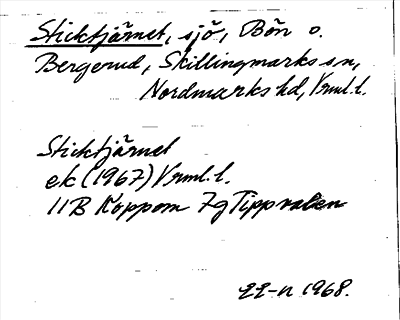 Sticktjärnet, sjö, Bön o.
Bergerud, Skillingmarks sn,
Nordmarks hd, Vrml.l.
Sticktjärnet
ek (1967) Vrml.l.
11B Koppom 7g
22-11 1968.